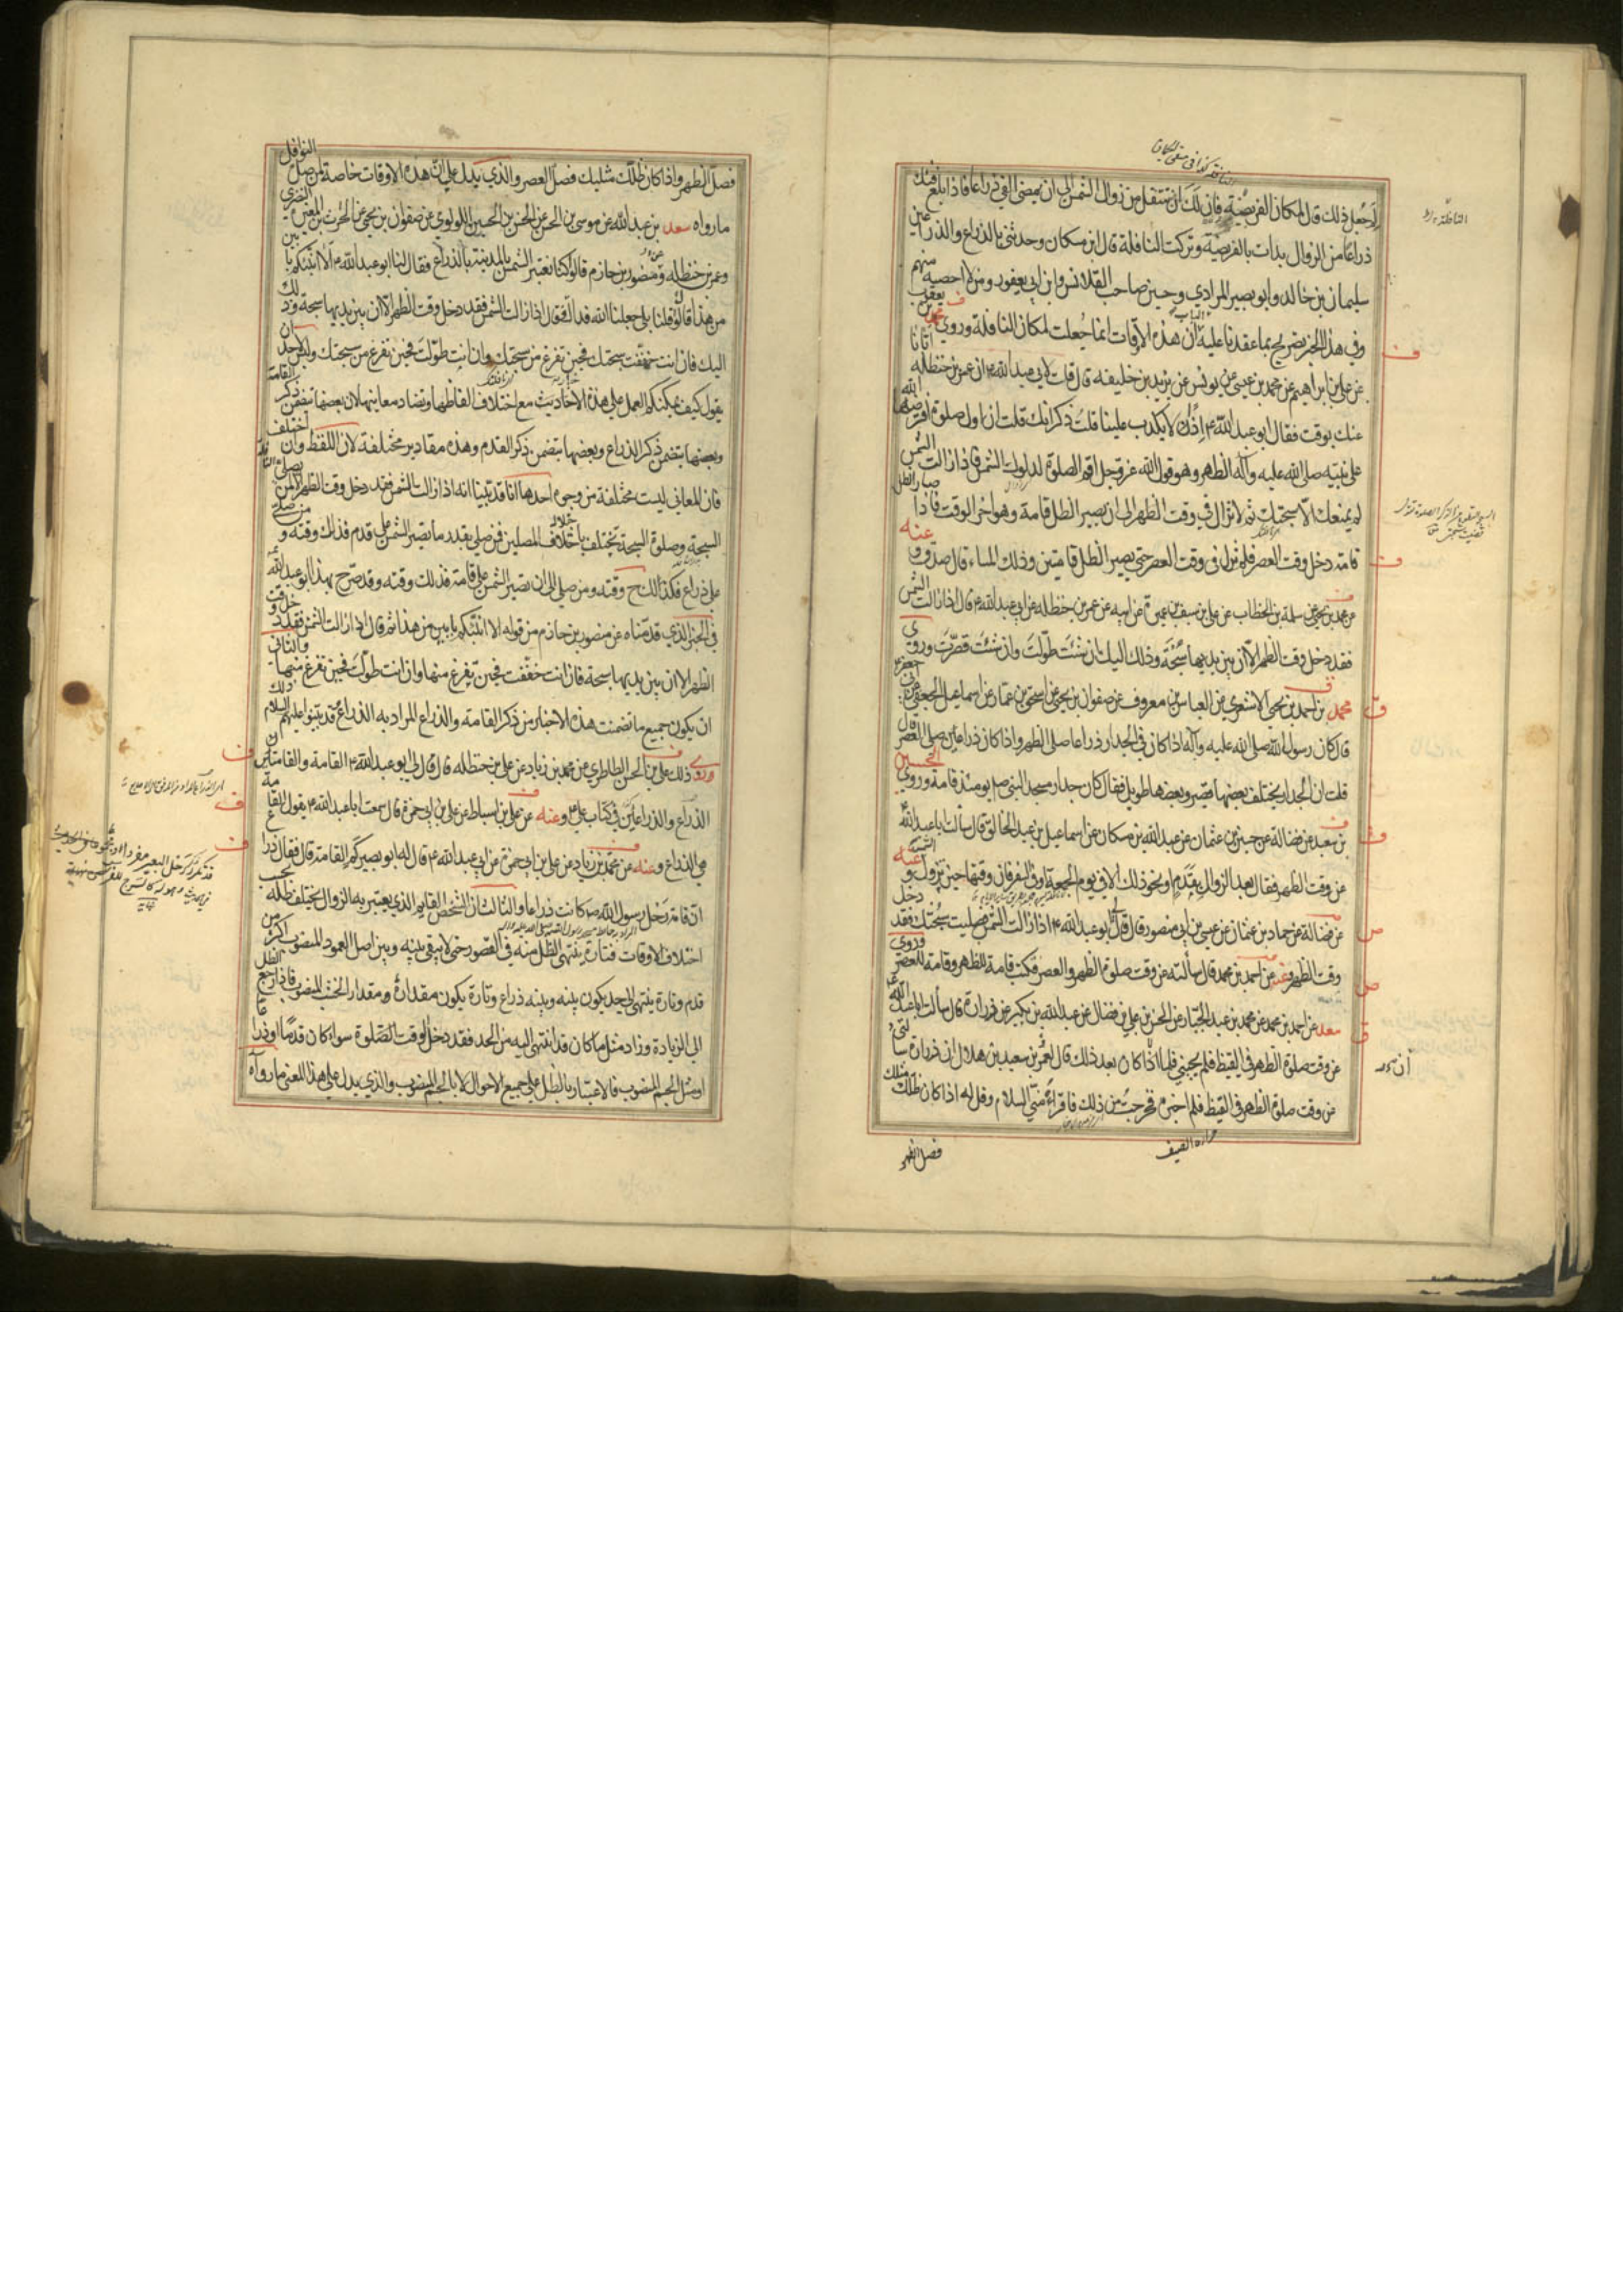 لم جعل ذلك قال لمكان الفريضة فان لك ان تتنفل من زوال الشمس الى ان يمضى الفئ ذراعا فاذا بلغ فيئك
ذراعا من الزوال بدأت بالفريضة وتركت النافلة قال ابن مسكان وحدثنى بالذراع والذراعين
سليمان بن خالد وابو بصير المرادي وحسين صاحب القلانس وابن ابي يعفور ومن لا احصيه منهم
وفي هذا الخبر تصريح بما عقدنا عليه الباب ان هذه الاوقات انما جعلت لمكان النافلة وروي محمد بن يعقوب
عن علي بن ابراهيم عن محمد بن عيسى عن يونس عن يزيد بن خليفه قال قلت لابي عبد الله ع ان عمر بن حنظله اتانا
عنك بوقت فقال ابو عبد الله ع اذن لا يكذب علينا قلت ذكر انك قلت ان اول صلوة افترضها الله
على نبيه صلى الله عليه وآله الظهر وهو قول الله عز وجل اقم الصلوة لدلوك الشمس فاذا زالت الشمس
لم يمنعك الا سبحتك ثم لا تزال في وقت الظهر الى ان يصير الظل قامة وهو اخر الوقت فاذا صار الظل
قامة دخل وقت العصر فلم تزل فى وقت العصر حتى يصير الظل قامتين وذلك المساء قال صدق و عنه
عن محمد بن يحيى عن سلمة بن الخطاب عن علي بن سيف بن عميرة عن ابيه عن عمر بن حنظله عن ابي عبد الله ع قال اذا زالت الشمس
فقد دخل وقت الظهر الا ان بين يديها سبحة وذلك اليك ان شئت طولت وان شئت قصرت وروى
محمد بن احمد بن يحيى الاشعري عن العباس بن معروف عن صفوان بن يحيى عن اسحق بن عمار عن اسماعيل الجعفي عن ابي جعفر ع
قال كان رسول الله صلى الله عليه وآله اذا كان فئ الجدار ذراعا صلى الظهر واذا كان ذراعين صلى العصر قال
قلت ان الجدار يختلف بعضها قصير وبعضها طويل فقال كان جدار مسجد النبي ص يومئذ قامة وروى الحسين
بن سعيد عن فضالة عن حسين بن عثمان عن عبد الله بن مسكان عن اسماعيل بن عبد الخالق قال سألت ابا عبد الله ع
عن وقت الظهر فقال بعد الزوال بقدم او نحو ذلك الا في يوم الجمعة او فى السفر فان وقتها حين تزول الشمس و عنه
عن فضالة عن حماد بن عثمان عن عيسى بن ابي منصور قال قال لي ابو عبد الله ع اذا زالت الشمس فصليت سبحتك فقد دخل
وقت الظهر وعنه عن احمد بن محمد قال سألته عن وقت صلوة الظهر والعصر فكتب قامة للظهر وقامة للعصر وروى
سعد عن احمد بن محمد عن محمد بن عبد الجبار عن الحسن بن علي بن فضال عن عبد الله بن بكير عن زرارة قال سألت ابا عبد الله ع
عن وقت صلوة الظهر في القيظ فلم يجبني فلما ان كان بعد ذلك قال لعمر بن سعيد بن هلال ان زرارة سألنى
عن وقت صلوة الظهر في القيظ فلم اخبره فحرجت من ذلك فاقرأه منى السلام وقل له اذا كان ظلك مثلك
فصل الظهر
فصل الظهر واذا كان ظلك مثليك فصل العصر والذي يدل على ان هذه الاوقات خاصة لمن صلى النوافل
ما رواه سعد بن عبد الله عن موسى بن الحسن عن الحسن بن الحسين اللولوي عن صفوان بن يحيى عن الحرث بن المغيرة النضرى
وعمر بن حنظله ومنصور بن حازم قالوا كنا نعتبر الشمس بالمدينة بالذراع فقال لنا ابو عبد الله ع الا انبئكم بابين
من هذا قالوا قلنا بلى جعلنا الله فداك قال اذا زالت الشمس فقد دخل وقت الظهر الا ان بين يديها سبحة وذلك
اليك فان انت خففت سبحتك فحين تفرغ من سبحتك وان انت طولت فحين تفرغ من سبحتك وليس لاحد ان
يقول كيف يمكنكم العمل على هذه الاحاديث مع اختلاف الفاظها وتضاد معانيها لان بعضها تتضمن ذكر القامة
وبعضها يتضمن ذكر الذراع وبعضها يتضمن ذكر القدم وهذه مقادير مختلفة لان اللفظ وان اختلف
فان المعاني ليست مختلفة من وجوه احدها انا قد بينا انه اذا زالت الشمس فقد دخل وقت الظهر الا لمن يصلي
السبحة وصلوة السبحة يختلف باختلاف المصلين فمن صلى بقدر ما تصير الشمس على قدم فذلك وقته و من صلى
على ذراع فكذلك ح وقته ومن صلى الى ان تصير الشمس على قامة فذلك وقته وقد صرح بهذا ابو عبد الله
في الخبر الذي قدمناه عن منصور بن حازم من قوله الا انبئكم بابين من هذا ثم قال اذا زالت الشمس فقد دخل وقت
الظهر الا ان بين يديها سبحة فان انت خففت فحين تفرغ منها وان انت طولت فحين تفرغ منها والثاني
ان يكون جميع ما تضمنت هذه الاخبار من ذكر القامة والذراع المراد به الذراع قد بينوا عليهم السلام ذلك
وروى ذلك علي بن الحسن الطاطري عن محمد بن زياد عن علي بن حنظله قال قال لي ابو عبد الله ع القامة والقامتان
الذراع والذراعين في كتاب علي ع وعنه عن علي بن اسباط عن علي بن ابي حمزة قال سمعت ابا عبد الله ع يقول القامة
هي الذراع وعنه عن محمد بن زياد عن علي بن ابي حمزة عن ابي عبد الله ع قال له ابو بصير كم القامة قال فقال ذراع
ان قامة رحل رسول الله ص كانت ذراعا والثالث ان الشخص القايم الذي يعتبر به الزوال يختلف ظله بحسب
اختلاف الاوقات فتارة ينتهى الظل منه في القصور حتى لا يبقى بينه وبين اصل العمود المنصوب اكثر من
قدم وتارة ينتهى الى حد يكون بينه وبينه ذراع وتارة يكون مقداره مقدار الخشب المنصوب فاذا رجع الظل
الى الزيادة وزاد مثل ما كان قد انتهى اليه من الحد فقد دخل الوقت الصلوة سواء كان قدما او ذراعا
او مثل الجسم المنصوب فالاعتبار بالظل على جميع الاحوال لا بالجسم المنصوب والذي يدل على هذا المعنى ما رواه